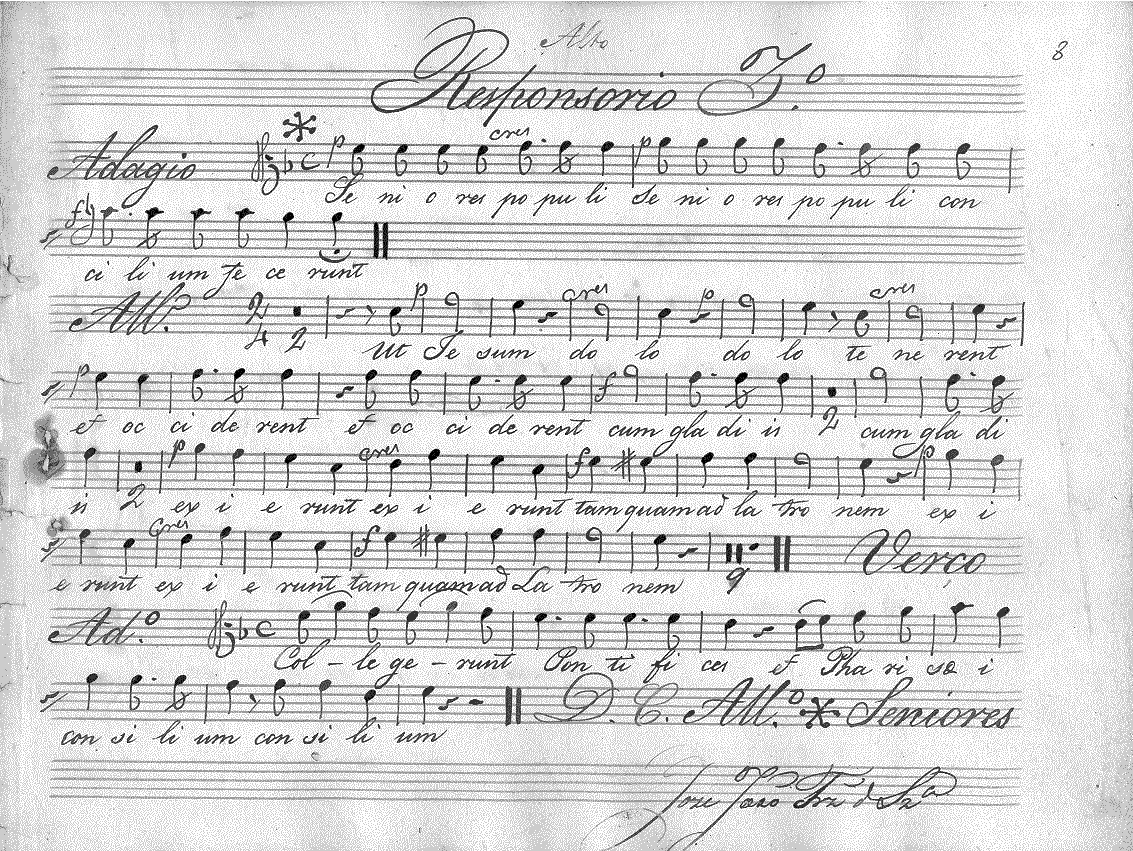 Alto
8
Responsorio 7.º
Adagio
p cres p
Se ni o res po pu li Se ni o res po pu li con
ci li um fe ce runt
All.º 2/4 2 p cres p cres
Ut Je sum do lo do lo te ne rent
p f 2
et oc ci de rent et oc ci de rent cum gla di is cum gla di
2 p cres f p
is ex i e runt ex i e runt tam quam ad la tro nem ex i
cres f 9 Verço
e runt ex i e runt tam quam ad La tro nem
Ad.º
Col - le ge - runt Pon ti fi ces et Pha ri sæ i
D. C. All.º Seniores
con si li um con si li um